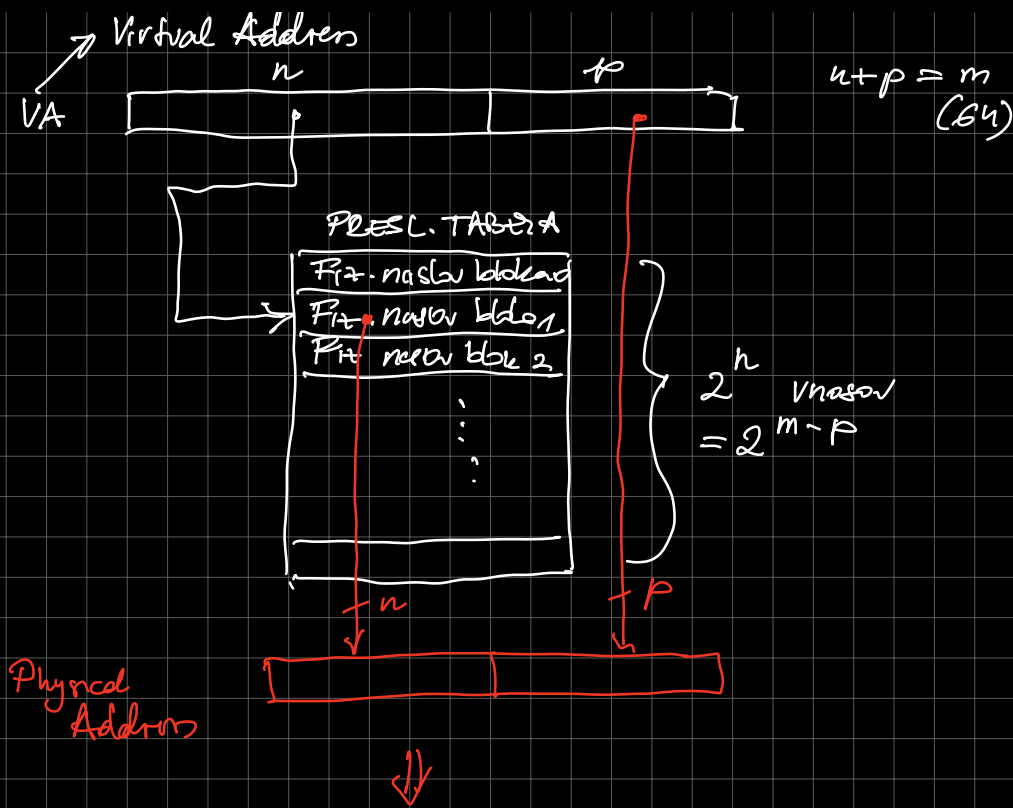 Virtual Address
n p n+p = m
VA (64)
PRESL. TABELA
Fiz. naslov bloka 0
Fiz. naslov bloka 1
Fiz naslov blok 2
2^n vnosov
= 2^m-p
n p
Physical
Address